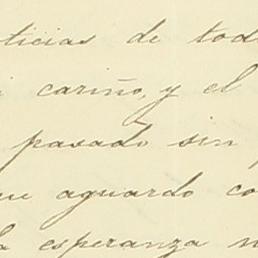 ticias de tod
i cariño, y el
pasado sin
ue aguardo co
la esperanza n